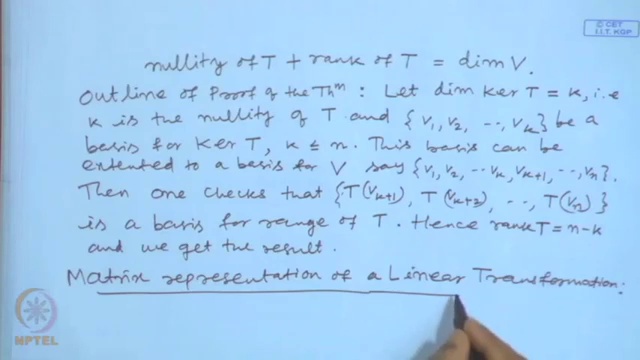 © CET
I.I.T. KGP
nullity of T + rank of T = dim V.
Outline of Proof of the Thm : Let dim ker T = k, i.e
k is the nullity of T and {v1, v2, ..., vk} be a
basis for Ker T, k ≤ n. This basis can be
extented to a basis for V say {v1, v2, .. vk, vk+1, .., vn}.
Then one checks that {T(vk+1), T(vk+2), .., T(vn)}
is a basis for range of T. Hence rank T = n-k
and we get the result.
Matrix representation of a Linear Transformation:
NPTEL